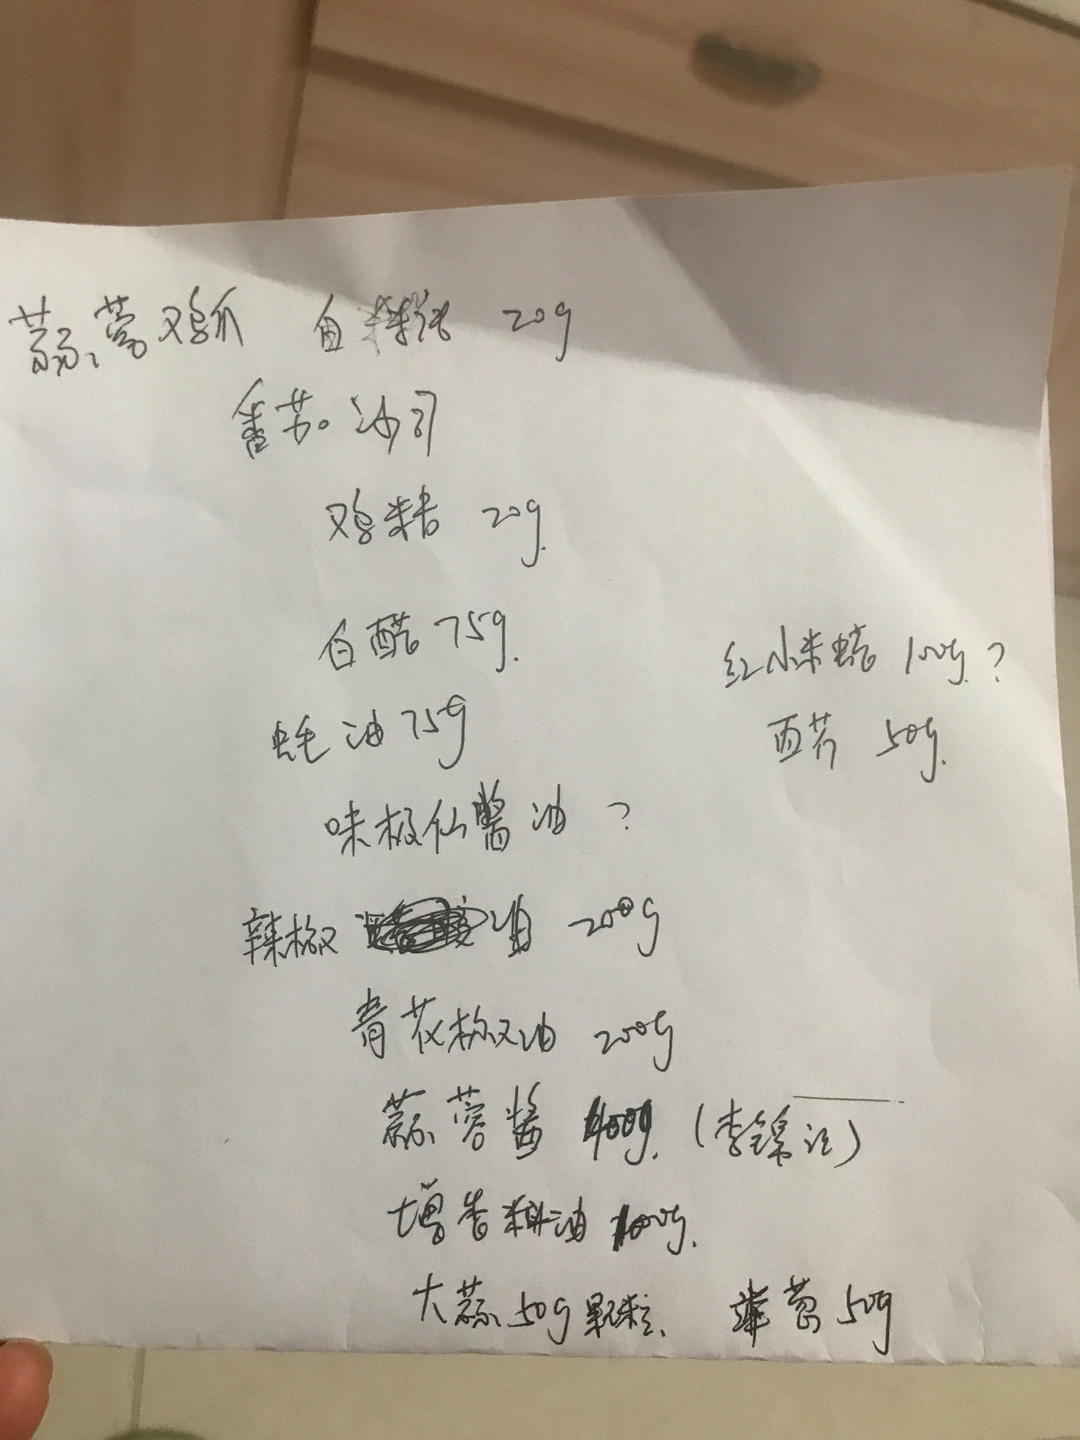 蒜蓉鸡爪 白糖 20g
番茄沙司
鸡精 20g.
白醋 75g.
红小米椒 100g.?
蚝油 75g
西芹 50g.
味极仙酱油 ?
辣椒油 200g
青花椒油 200g
蒜蓉酱 400g. (李锦记)
增香料油 100g.
大蒜 50g 颗粒、 50g